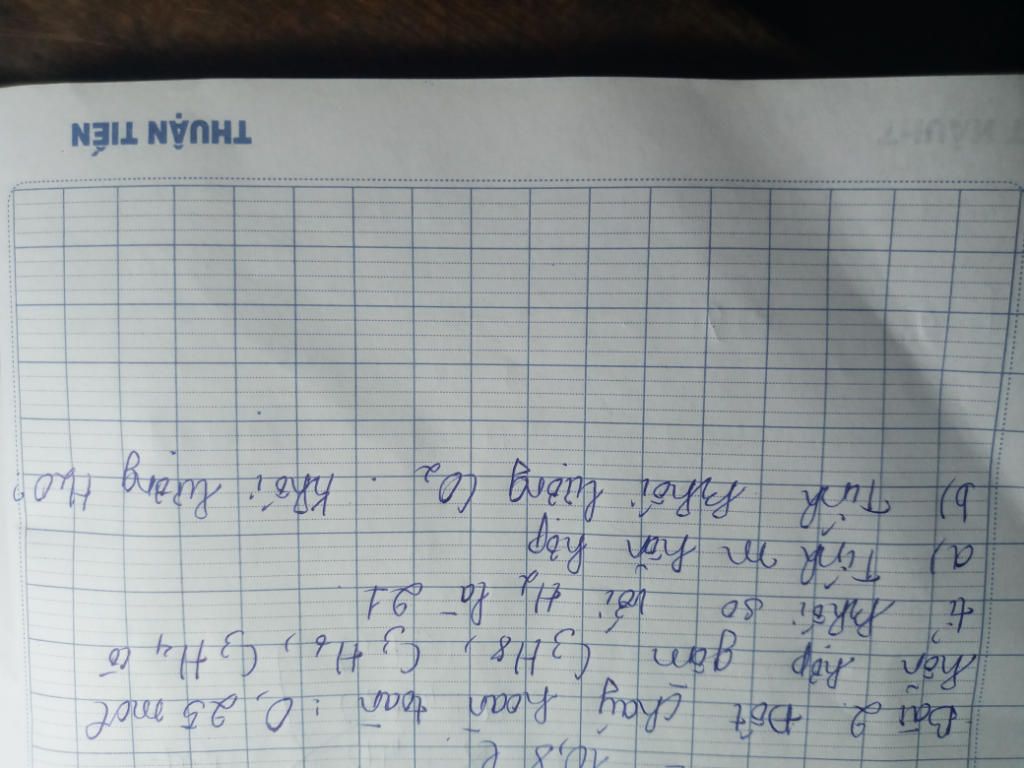 10,8 l
Bài 2. Đốt cháy hoàn toàn : 0,25 mol
hỗn hợp gồm C3H8, C3H6, C3H4, có
tỉ khối so với H2 là 21
a) Tính m hỗn hợp
b) Tính khối lượng CO2 . khối lượng H2O?
THUẬN TIẾN